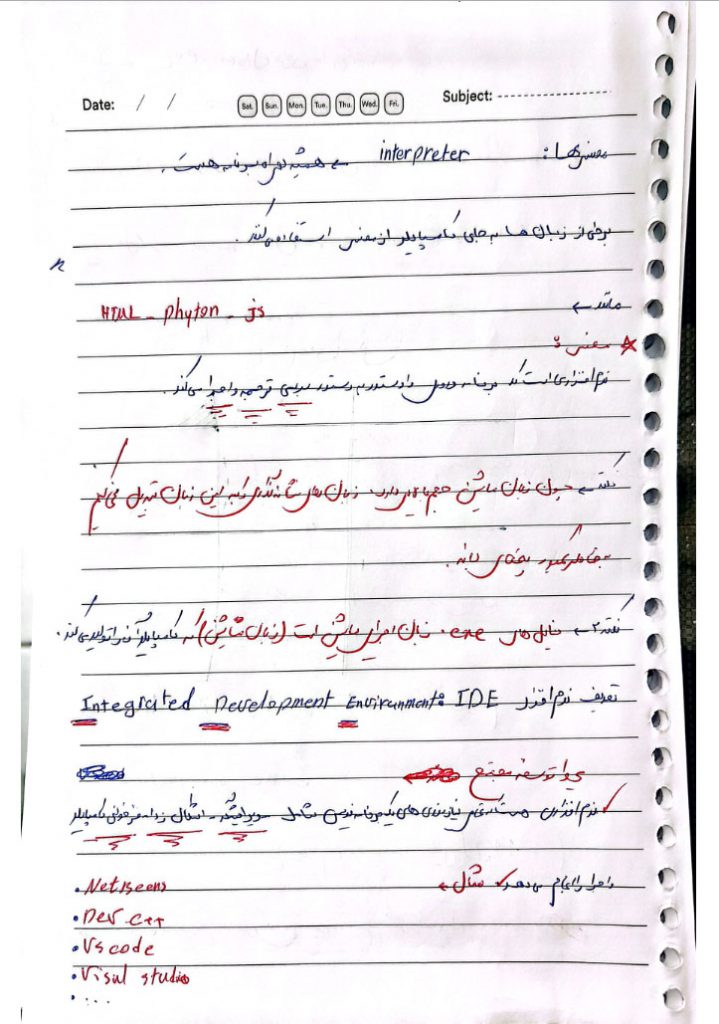 Date: / / Sat. Sun. Mon. Tue. Thu. Wed. Fri. Subject:
مفسرها : interpreter ← همیشه همراه برنامه هست.
برخی از زبان ها به جای کامپایلر از مفسر استفاده می کنند.
مانند ← HTML - phyton - js
مفسر :
نرم افزاری است که برنامه را دستور به دستور بررسی ترجمه و اجرا می کند.
نکته ← چون زبان ماشین حجم دارد، زبان های را به این زبان تبدیل می کنیم
به خاطر
نکته ۲ ← فایل های exe. زبان اجرایی ماشین است (زبان ماشین) که کامپایلر آن را تولید می کند.
تعریف نرم افزار IDE : Integrated Development Environment
توسعه مجتمع
نرم افزاری نیازمندی های یک برنامه نویس شامل ویرایشگر - اشکال زدا - کامپایلر
و اجرا را انجام می دهد مثال ←
• Netbeens
• Dev c++
• Vs code
• Visul studio
• ...